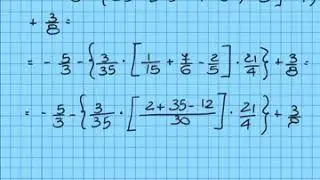 + 3/8 =
= - 5/3 - {3/35 · [1/15 + 7/6 - 2/5] · 21/4} + 3/8 =
= - 5/3 - {3/35 · [(2 + 35 - 12)/30] · 21/4} + 3/8